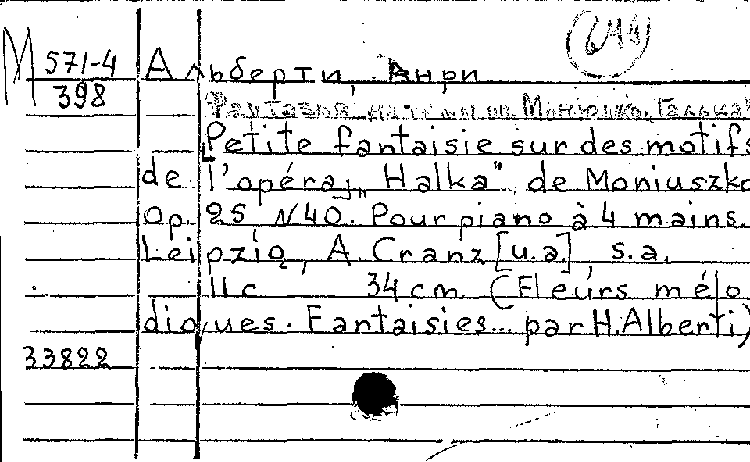 M 571-4
398
Альберти, Анри
Фантазия на темы оп. Монюшко, Галька
Petite fantaisie sur des motifs
de l'opéra „Halka" de Moniuszko
op. 25 N40. Pour piano à 4 mains.
Leipzig, A. Cranz [u.a], s.a.
11 c 34 cm (Fleurs mélo
diques. Fantaisies... par H. Alberti)
33822